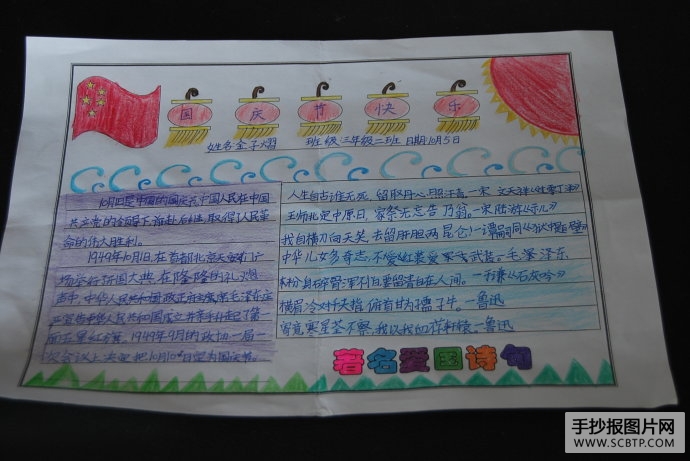 国庆节快乐
姓名:金子熠 班级:三年级二班 日期:10月5日
10月1日是中国的国庆节,中国人民在中国
共产党的领导下,前赴后继,取得了人民革
命的伟大胜利。
1949年10月1日,在首都北京天安门广
场举行开国大典,在隆隆的礼炮
声中,中华人民共和国中央政府主席毛泽东庄
严宣告中华人民共和国成立并亲手升起了第
一面五星红旗。1949年9月的政协一届一
次会议上决定把10月1日定为国庆节。
人生自古谁无死,留取丹心照汗青。—宋 文天祥《过零丁洋》
王师北定中原日,家祭无忘告乃翁。—宋陆游《示儿》
我自横刀向天笑,去留肝胆两昆仑!—谭嗣同《狱中题壁》
中华儿女多奇志,不爱红装爱武装。—毛泽东
粉身碎骨浑不怕,要留清白在人间。—于谦《石灰吟》
横眉冷对千夫指,俯首甘为孺子牛。—鲁迅
寄意寒星荃不察,我以我血荐轩辕—鲁迅
著名爱国诗句
手抄报图片网
WWW.SCBTP.COM